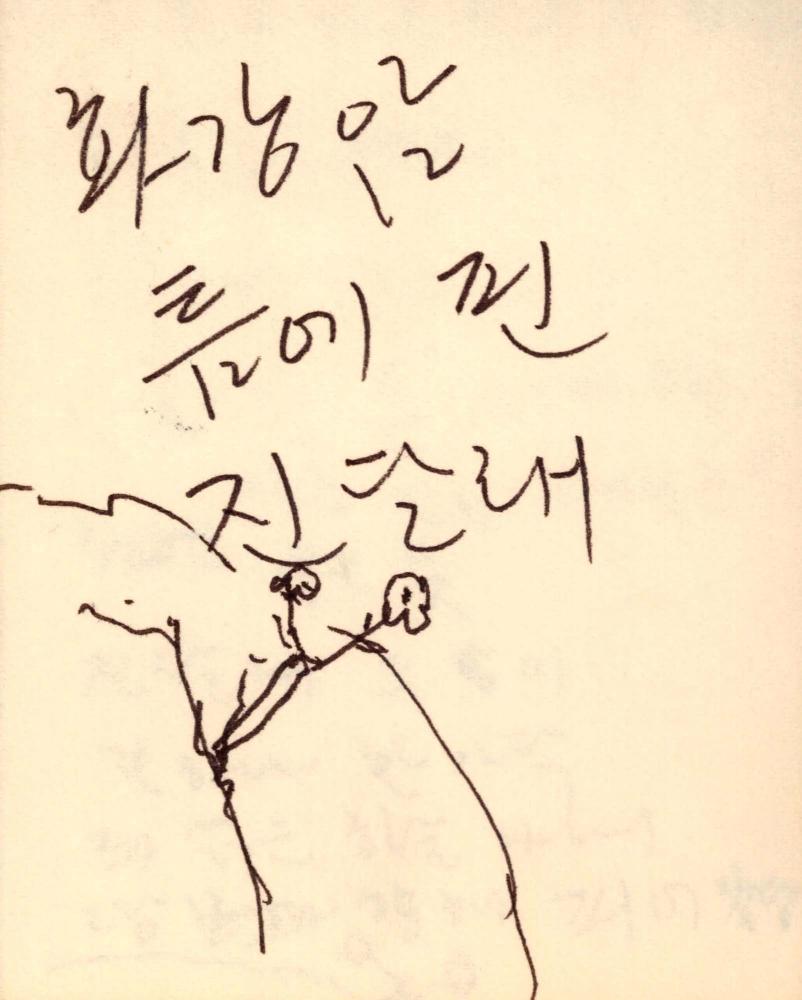 화강암
틈에 핀
진달래